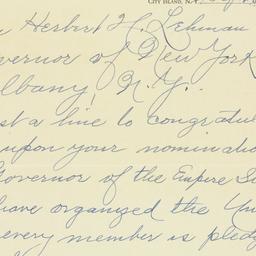 CITY ISLAND, N.Y.
Herbert H. Lehman
overnor of New York
lbany N.Y.
st a line to congratul
upon your nominatio
Governor of the Empire S
have organized the Un
every member is pledg